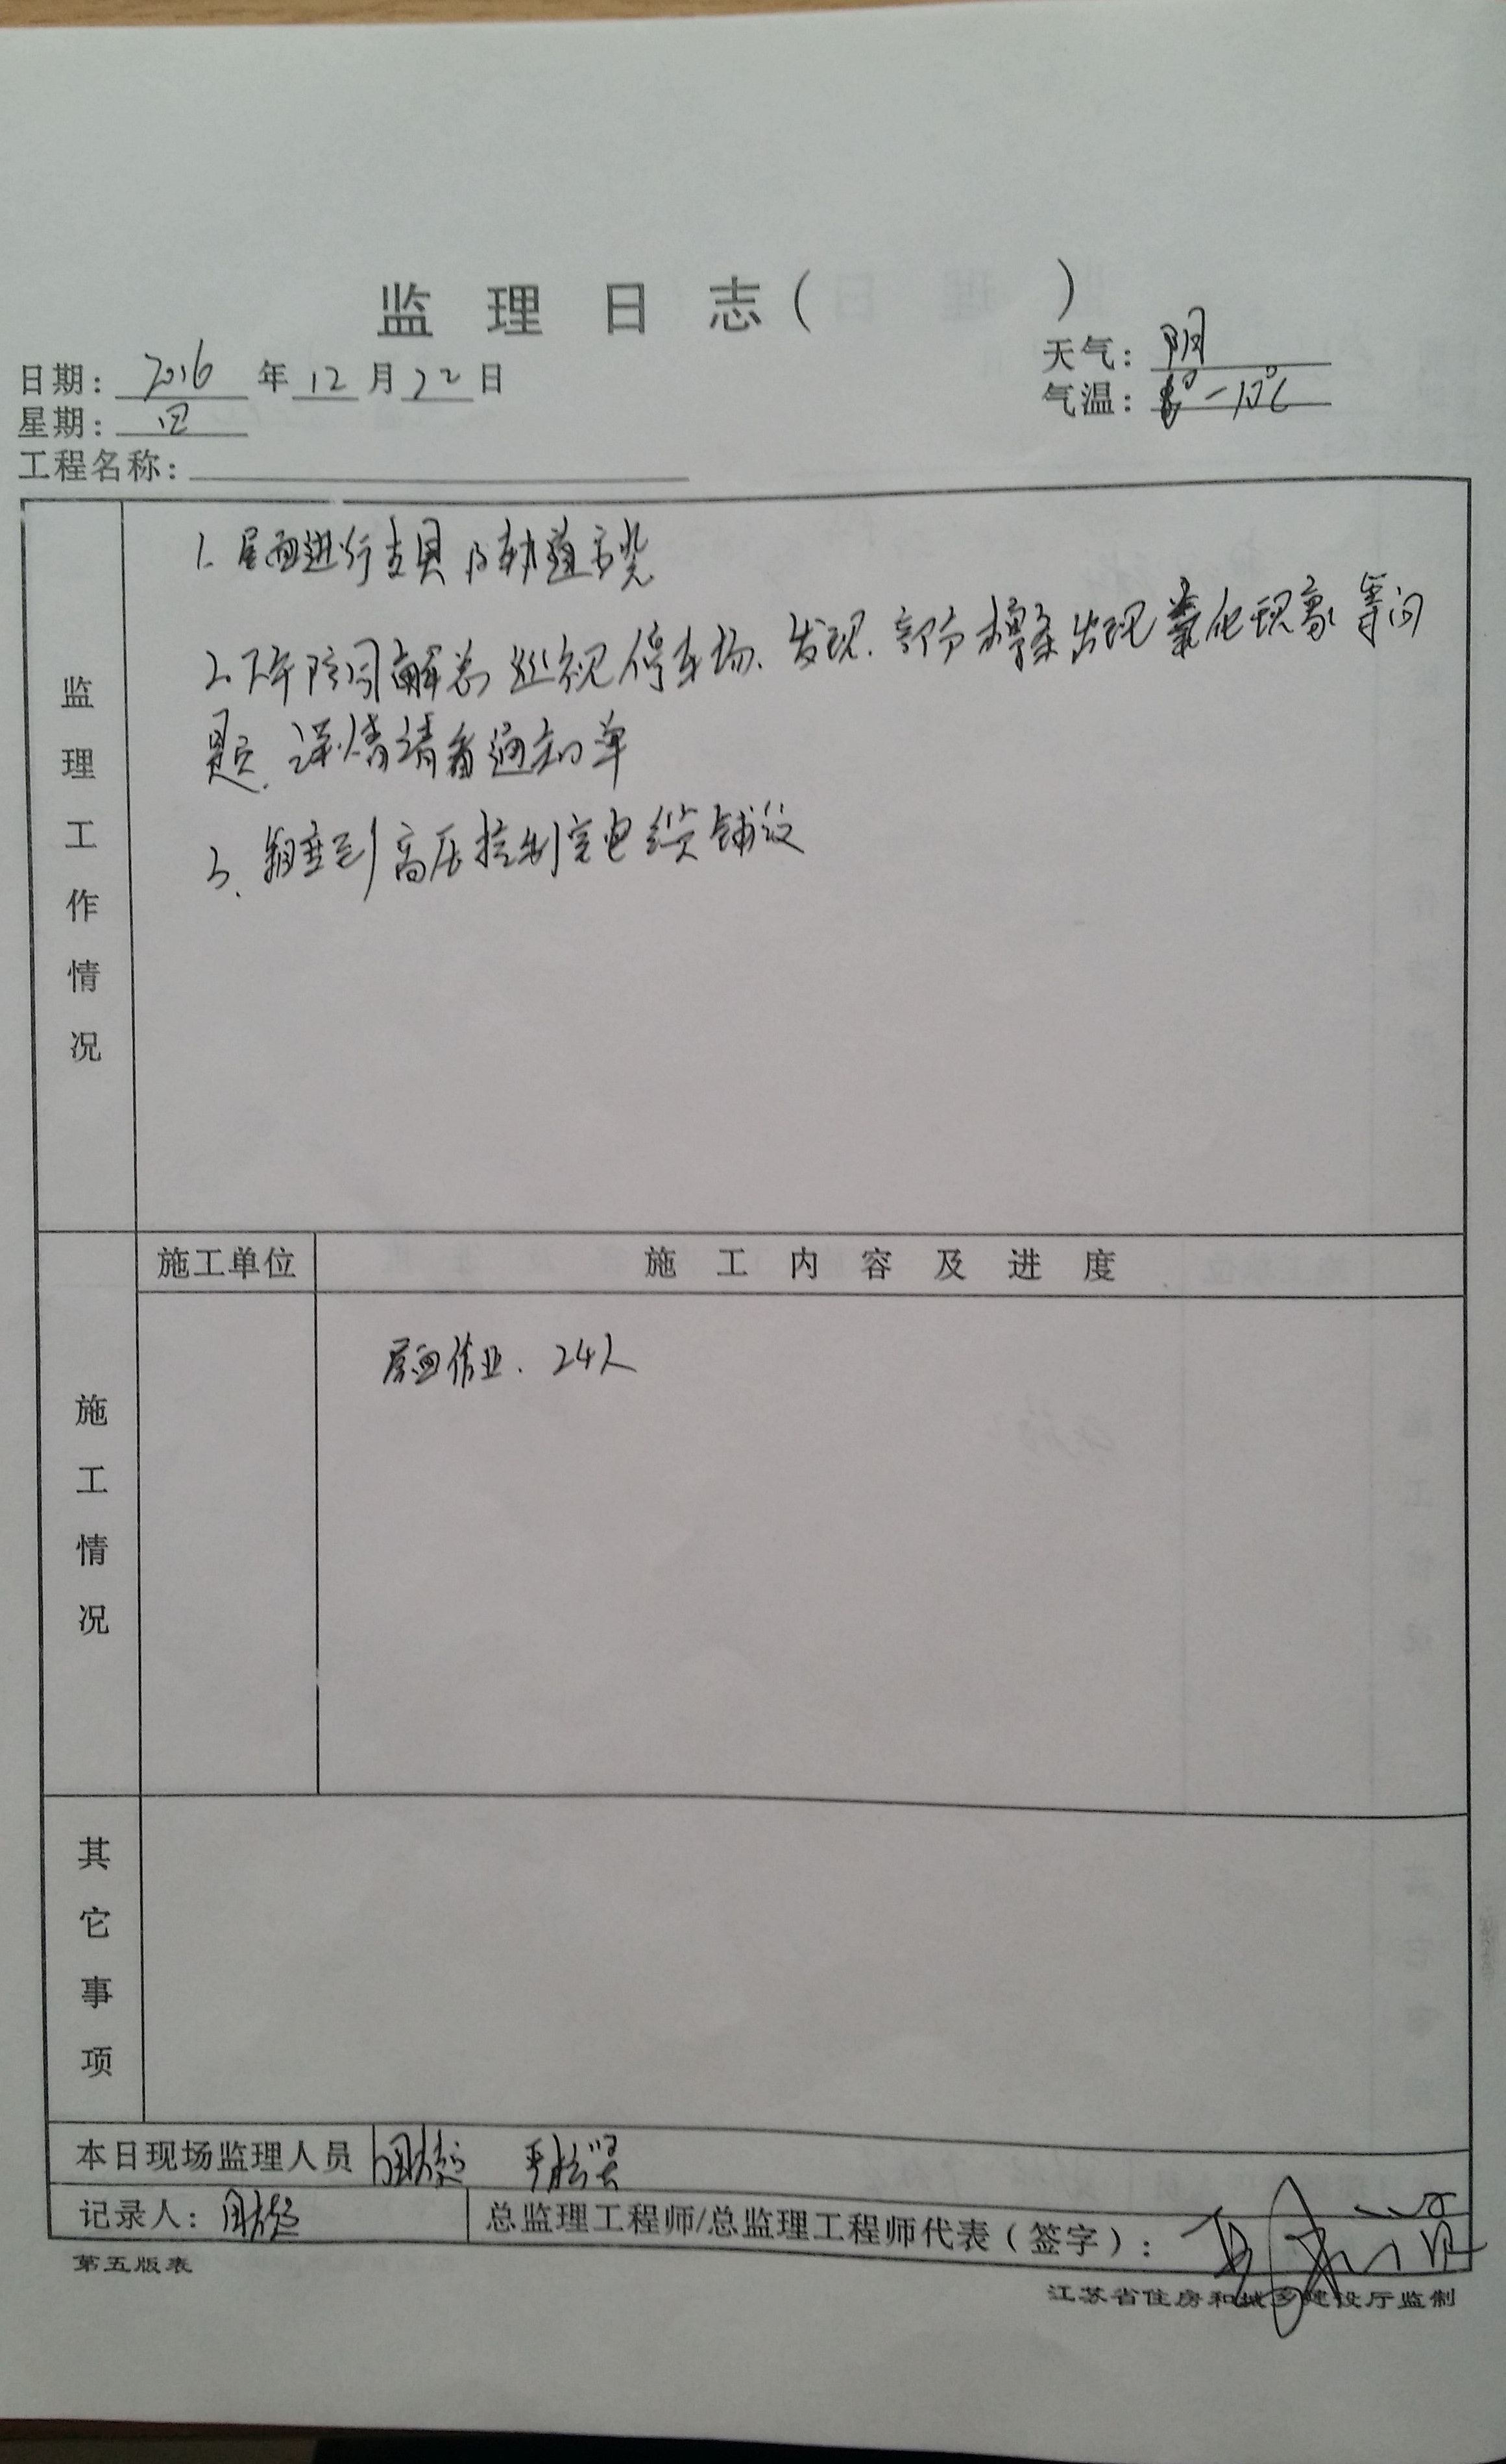 监理日志（ ）
日期：2016年12月22日
天气：阴
星期：四
气温：-10℃
工程名称：
监理工作情况
1. 屋面进行支具及轨道安装
2. 下午陪同解总巡视停车场、发现、部分檩条出现氧化现象等问
题、详情请看通知单
3、箱变到高压控制室电缆铺设
施工情况
施工单位 施工内容及进度
屋面作业、24人
其它事项
本日现场监理人员
记录人： 总监理工程师/总监理工程师代表（签字）：
第五版表
江苏省住房和城乡建设厅监制